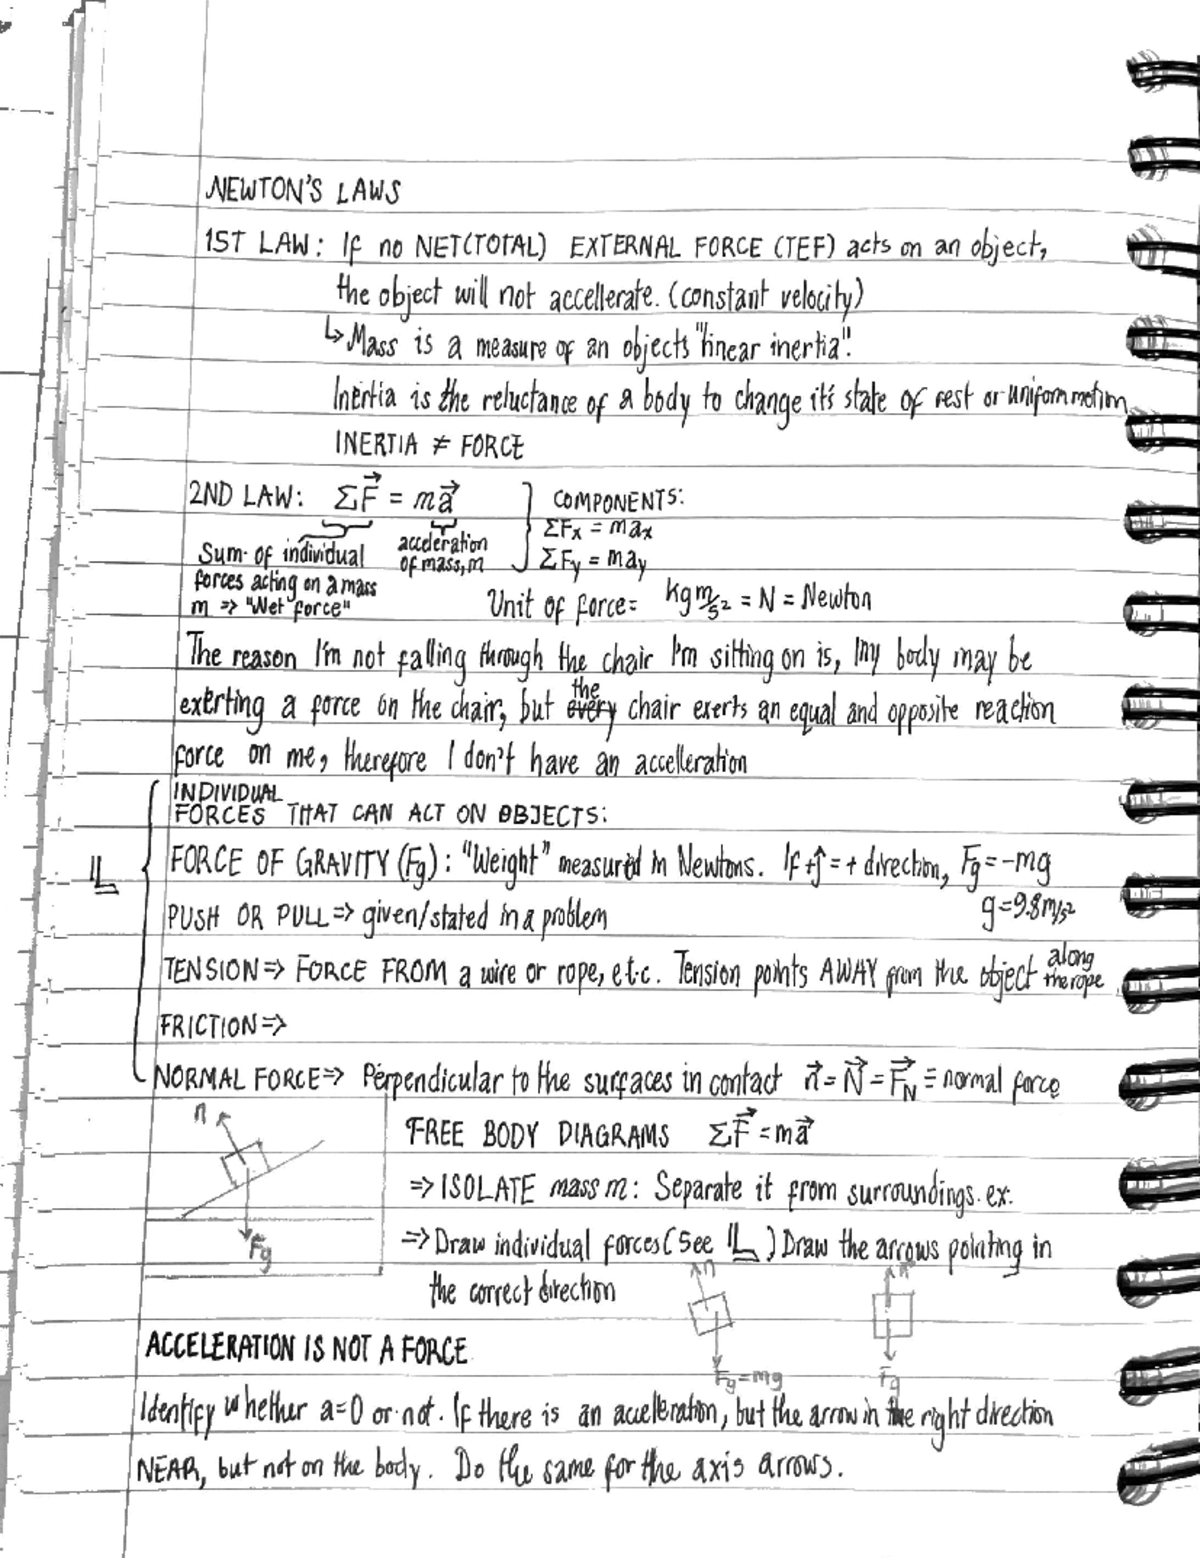 NEWTON'S LAWS
1ST LAW: If no NET(TOTAL) EXTERNAL FORCE (TEF) acts on an object,
the object will not accellerate. (constant velocity)
↳ Mass is a measure of an objects "linear inertia".
Inertia is the reluctance of a body to change it's state of rest or uniform motion
INERTIA ≠ FORCE
2ND LAW: ΣF⃗ = ma⃗ } COMPONENTS:
ΣFx = max
ΣFy = may
Sum of individual
forces acting on a mass
m => "Net force"
acceleration
of mass, m
Unit of force = kg m/s² = N = Newton
The reason I'm not falling through the chair I'm sitting on is, my body may be
exerting a force on the chair, but the every chair exerts an equal and opposite reaction
force on me, therefore I don't have an accelleration
INDIVIDUAL
FORCES THAT CAN ACT ON OBJECTS:
FORCE OF GRAVITY (Fg): "Weight" measured in Newtons. If +ĵ = + direction, Fg = -mg
g = 9.8 m/s²
PUSH OR PULL => given/stated in a problem
TENSION => FORCE FROM a wire or rope, etc. Tension points AWAY from the object along the rope
FRICTION =>
NORMAL FORCE => Perpendicular to the surfaces in contact n⃗ = N⃗ = F⃗N ≡ normal force
n
Fg
FREE BODY DIAGRAMS ΣF⃗ = ma⃗
=> ISOLATE mass m: Separate it from surroundings. ex.
=> Draw individual forces (See IL) Draw the arrows pointing in
the correct direction
n
Fg = mg
n
Fg
ACCELERATION IS NOT A FORCE
Identify whether a=0 or not. If there is an acceleration, but the arrow in the right direction
NEAR, but not on the body. Do the same for the axis arrows.